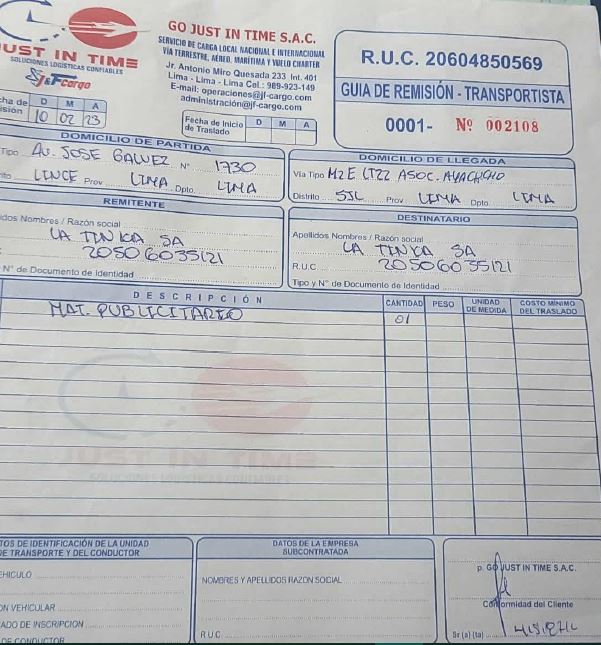 GO JUST IN TIME S.A.C.
UST IN TIME
SOLUCIONES LOGÍSTICAS CONFIABLES
J&F cargo
SERVICIO DE CARGA LOCAL NACIONAL E INTERNACIONAL
VÍA TERRESTRE, AEREO, MARÍTIMA Y VUELO CHARTER
Jr. Antonio Miro Quesada 233 Int. 401
Lima - Lima - Lima Cel.: 989-923-149
E-mail: operaciones@jf-cargo.com
administración@jf-cargo.com
R.U.C. 20604850569
GUIA DE REMISIÓN - TRANSPORTISTA
0001- Nº 002108
cha de
isión
D M A
10 02 23
Fecha de Inicio
de Traslado
D M A
DOMICILIO DE PARTIDA
Tipo AV. JOSE GALVEZ Nº 1730
ito LINCE Prov LIMA Dpto. LIMA
DOMICILIO DE LLEGADA
Vía Tipo MZ E LT22 ASOC.
Distrito SJL Prov LIMA Dpto. LIMA
REMITENTE
idos Nombres / Razón social
LA TINKA SA
20506035121
Nº de Documento de Identidad
DESTINATARIO
Apellidos Nombres / Razón social
LA TINKA SA
R.U.C. 20506035121
Tipo y Nº de Documento de Identidad
DESCRIPCIÓN CANTIDAD PESO UNIDAD DE MEDIDA COSTO MÍNIMO DEL TRASLADO
MAT. PUBLICITARIO 01
JUST IN TIME
SOLUCIONES LOGÍSTICAS CONFIABLES
TOS DE IDENTIFICACIÓN DE LA UNIDAD
DE TRANSPORTE Y DEL CONDUCTOR
EHICULO
ON VEHICULAR
ADO DE INSCRIPCION
DE CONDUCTOR
DATOS DE LA EMPRESA
SUBCONTRATADA
NOMBRES Y APELLIDOS RAZON SOCIAL
R.U.C.
p. GO JUST IN TIME S.A.C.
Conformidad del Cliente
Sr (a) (ta)